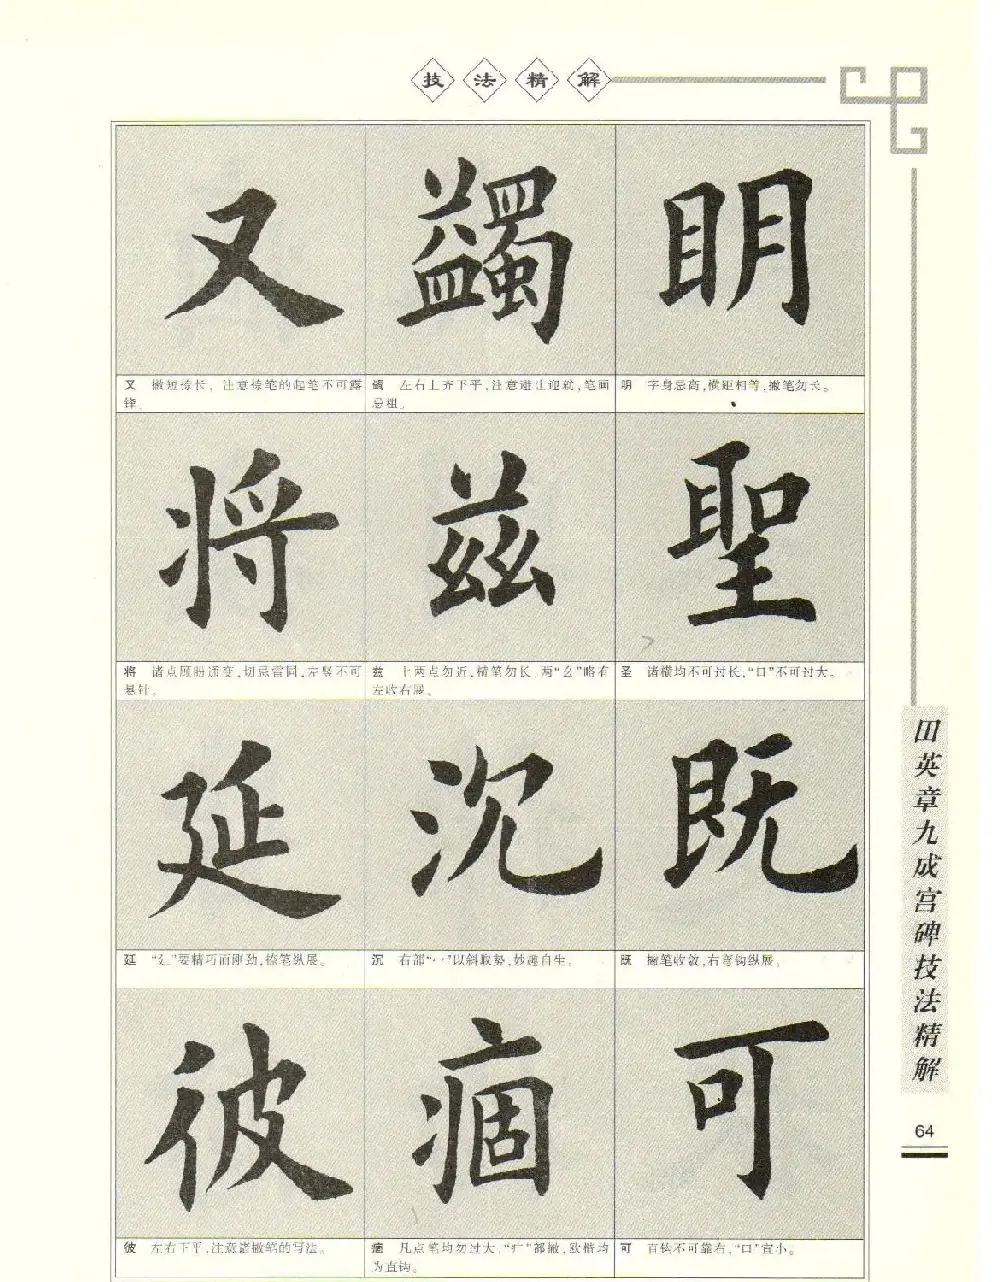 技法精解
又 蠲 明
又 撇短捺长，注意捺笔的起笔不可露
锋。
蠲 左右上齐下平，注意避让迎就，笔画
忌粗。
明 字身忌高，横距相等，撇笔勿长。
将 兹 聖
将 诸点顾盼适变，切忌雷同，左竖不可
悬针。
兹 上两点勿近，横笔勿长，两“幺”略有
左收右展。
圣 诸横均不可过长，“口”不可过大。
延 沉 既
延 “廴”要精巧而刚劲，捺笔纵展。
沉 右部“冖”以斜取势，妙趣自生。
既 撇笔收敛，右弯钩纵展。
彼 痼 可
彼 左右下平，注意诸撇笔的写法。
痼 凡点笔均勿过大，“疒”部撇，欧楷均
为直钩。
可 直钩不可靠右，“口”宜小。
田英章九成宫碑技法精解
64